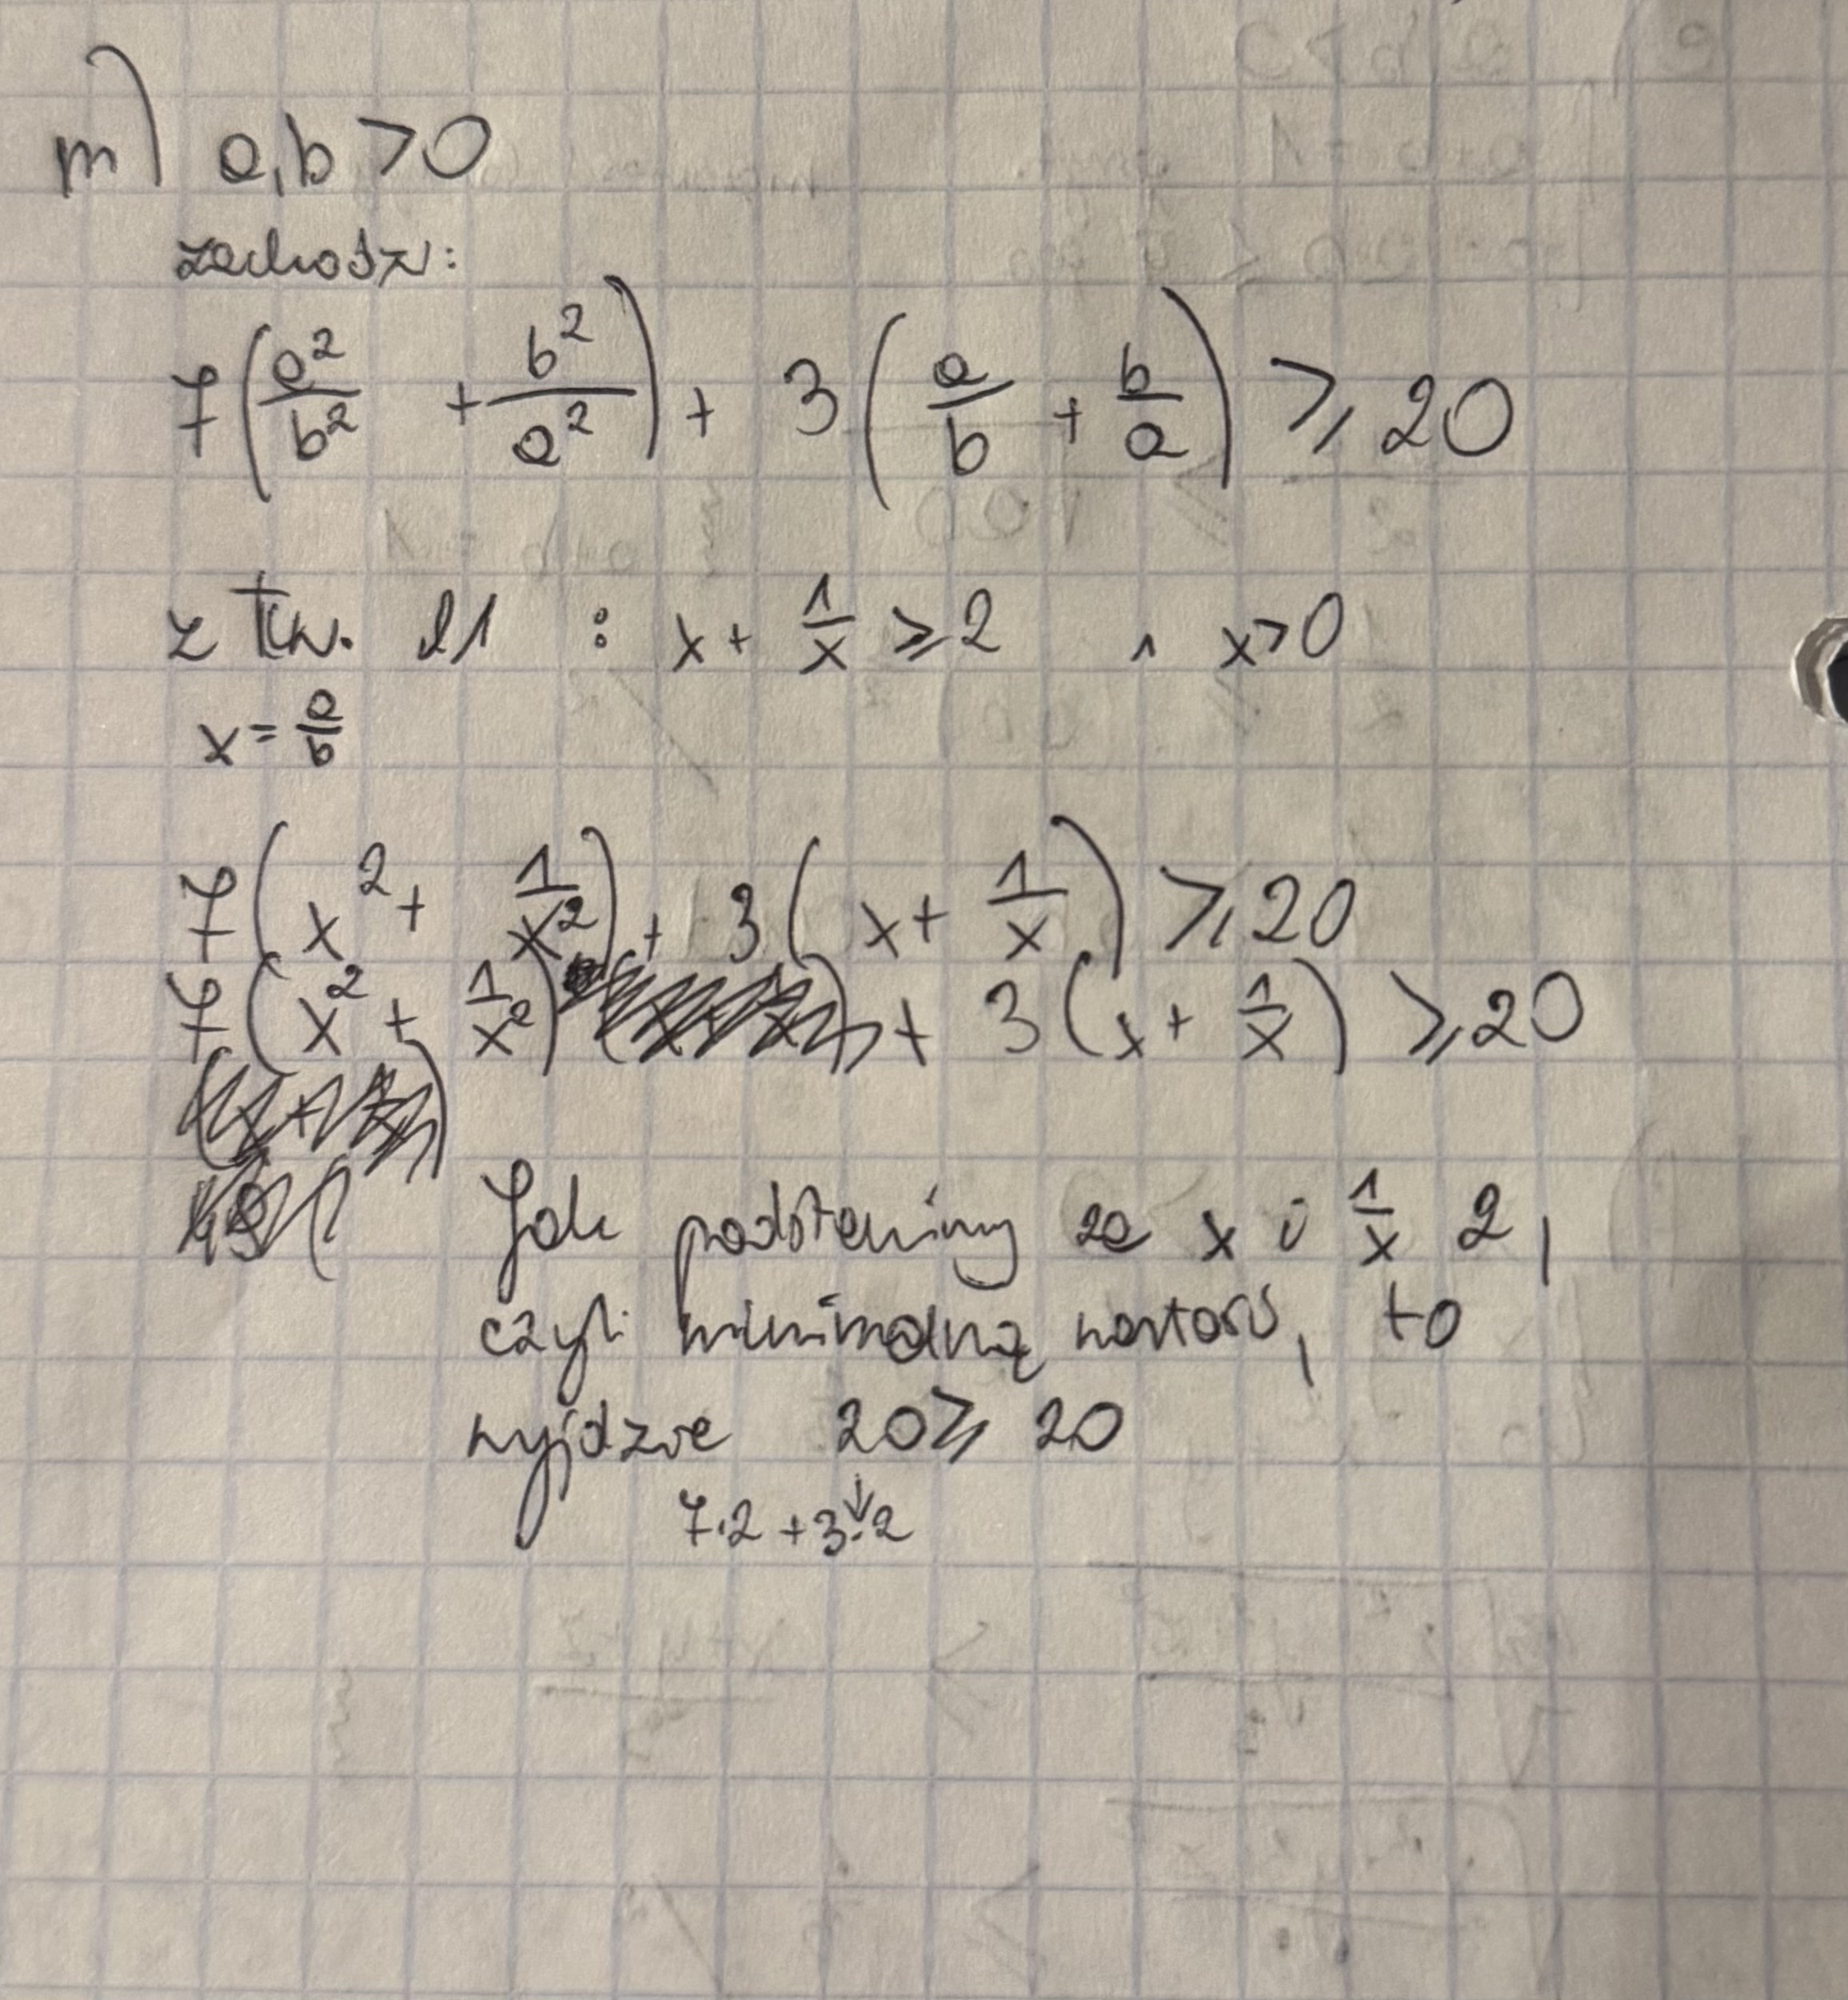 m) a,b > 0
zachodzi:
7(a²/b² + b²/a²) + 3(a/b + b/a) ⩾ 20
z Tw. 21 : x + 1/x ⩾ 2 ∧ x > 0
x = a/b
7(x² + 1/x²) + 3(x + 1/x) ⩾ 20
7(x² + 1/x²) + 3(x + 1/x) ⩾ 20
Jak podstawimy za x i 1/x 2,
czyli minimalną wartość, to
wyjdzie 20 ⩾ 20
↓
7·2 + 3·2